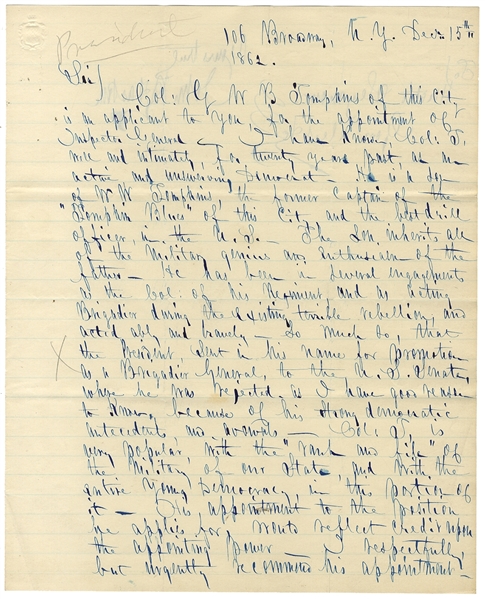 President
106 Broadway, N.Y. Dec. 15th
1862.
Sir/
Col. Geo W B Tompkins of this City
is an applicant to you, for the appointment of
Inspector General — I have known Col: T.
well and intimately, for twenty years past, as an
active and unswerving Democrat. He is a Son
of W W Tompkins, the former Captain of the
"Tompkin Blues" of this City and the best drill
officer, in the U.S.— The Son, inherits all
of the Military genius and Enthusiasm of the
father — He has been in several engagements
as the Col: of his Regiment, and as acting
Brigadier during the existing terrible rebellion, and
acted ably and bravely — So much so, that
X the President, Sent in his name for promotion
as a Brigadier General, to the U.S. Senate,
where he was rejected, as I have good reason
to know, because of his strong democratic
antecedents, and avowals — Col: T. is
very popular, with the "rank and file" of
the Military of our State, and with the
entire Young Democracy, in this portion of
it — His appointment to the position
he applies for, would reflect credit upon
the appointing power — I respectfully,
but urgently recommend his appointment —